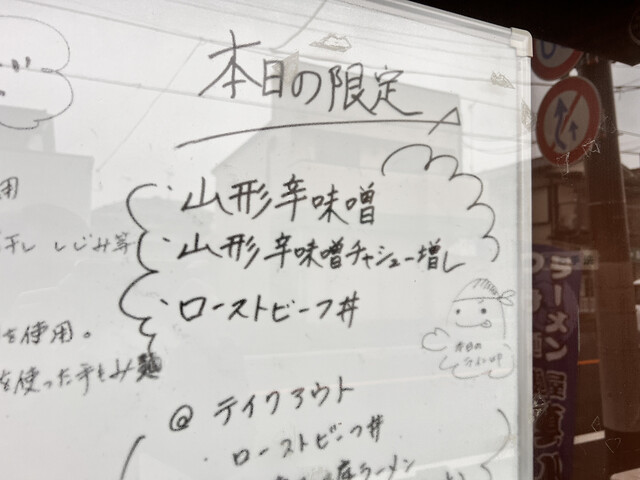 本日の限定
・山形辛味噌
・山形辛味噌チャシュー増し
・ローストビーフ丼
用
干し しじみ等
を使用。
を使った手もみ麺
本日の
ラインUP
@ テイクアウト
・ローストビーフ丼
ラーメン
ラーメン